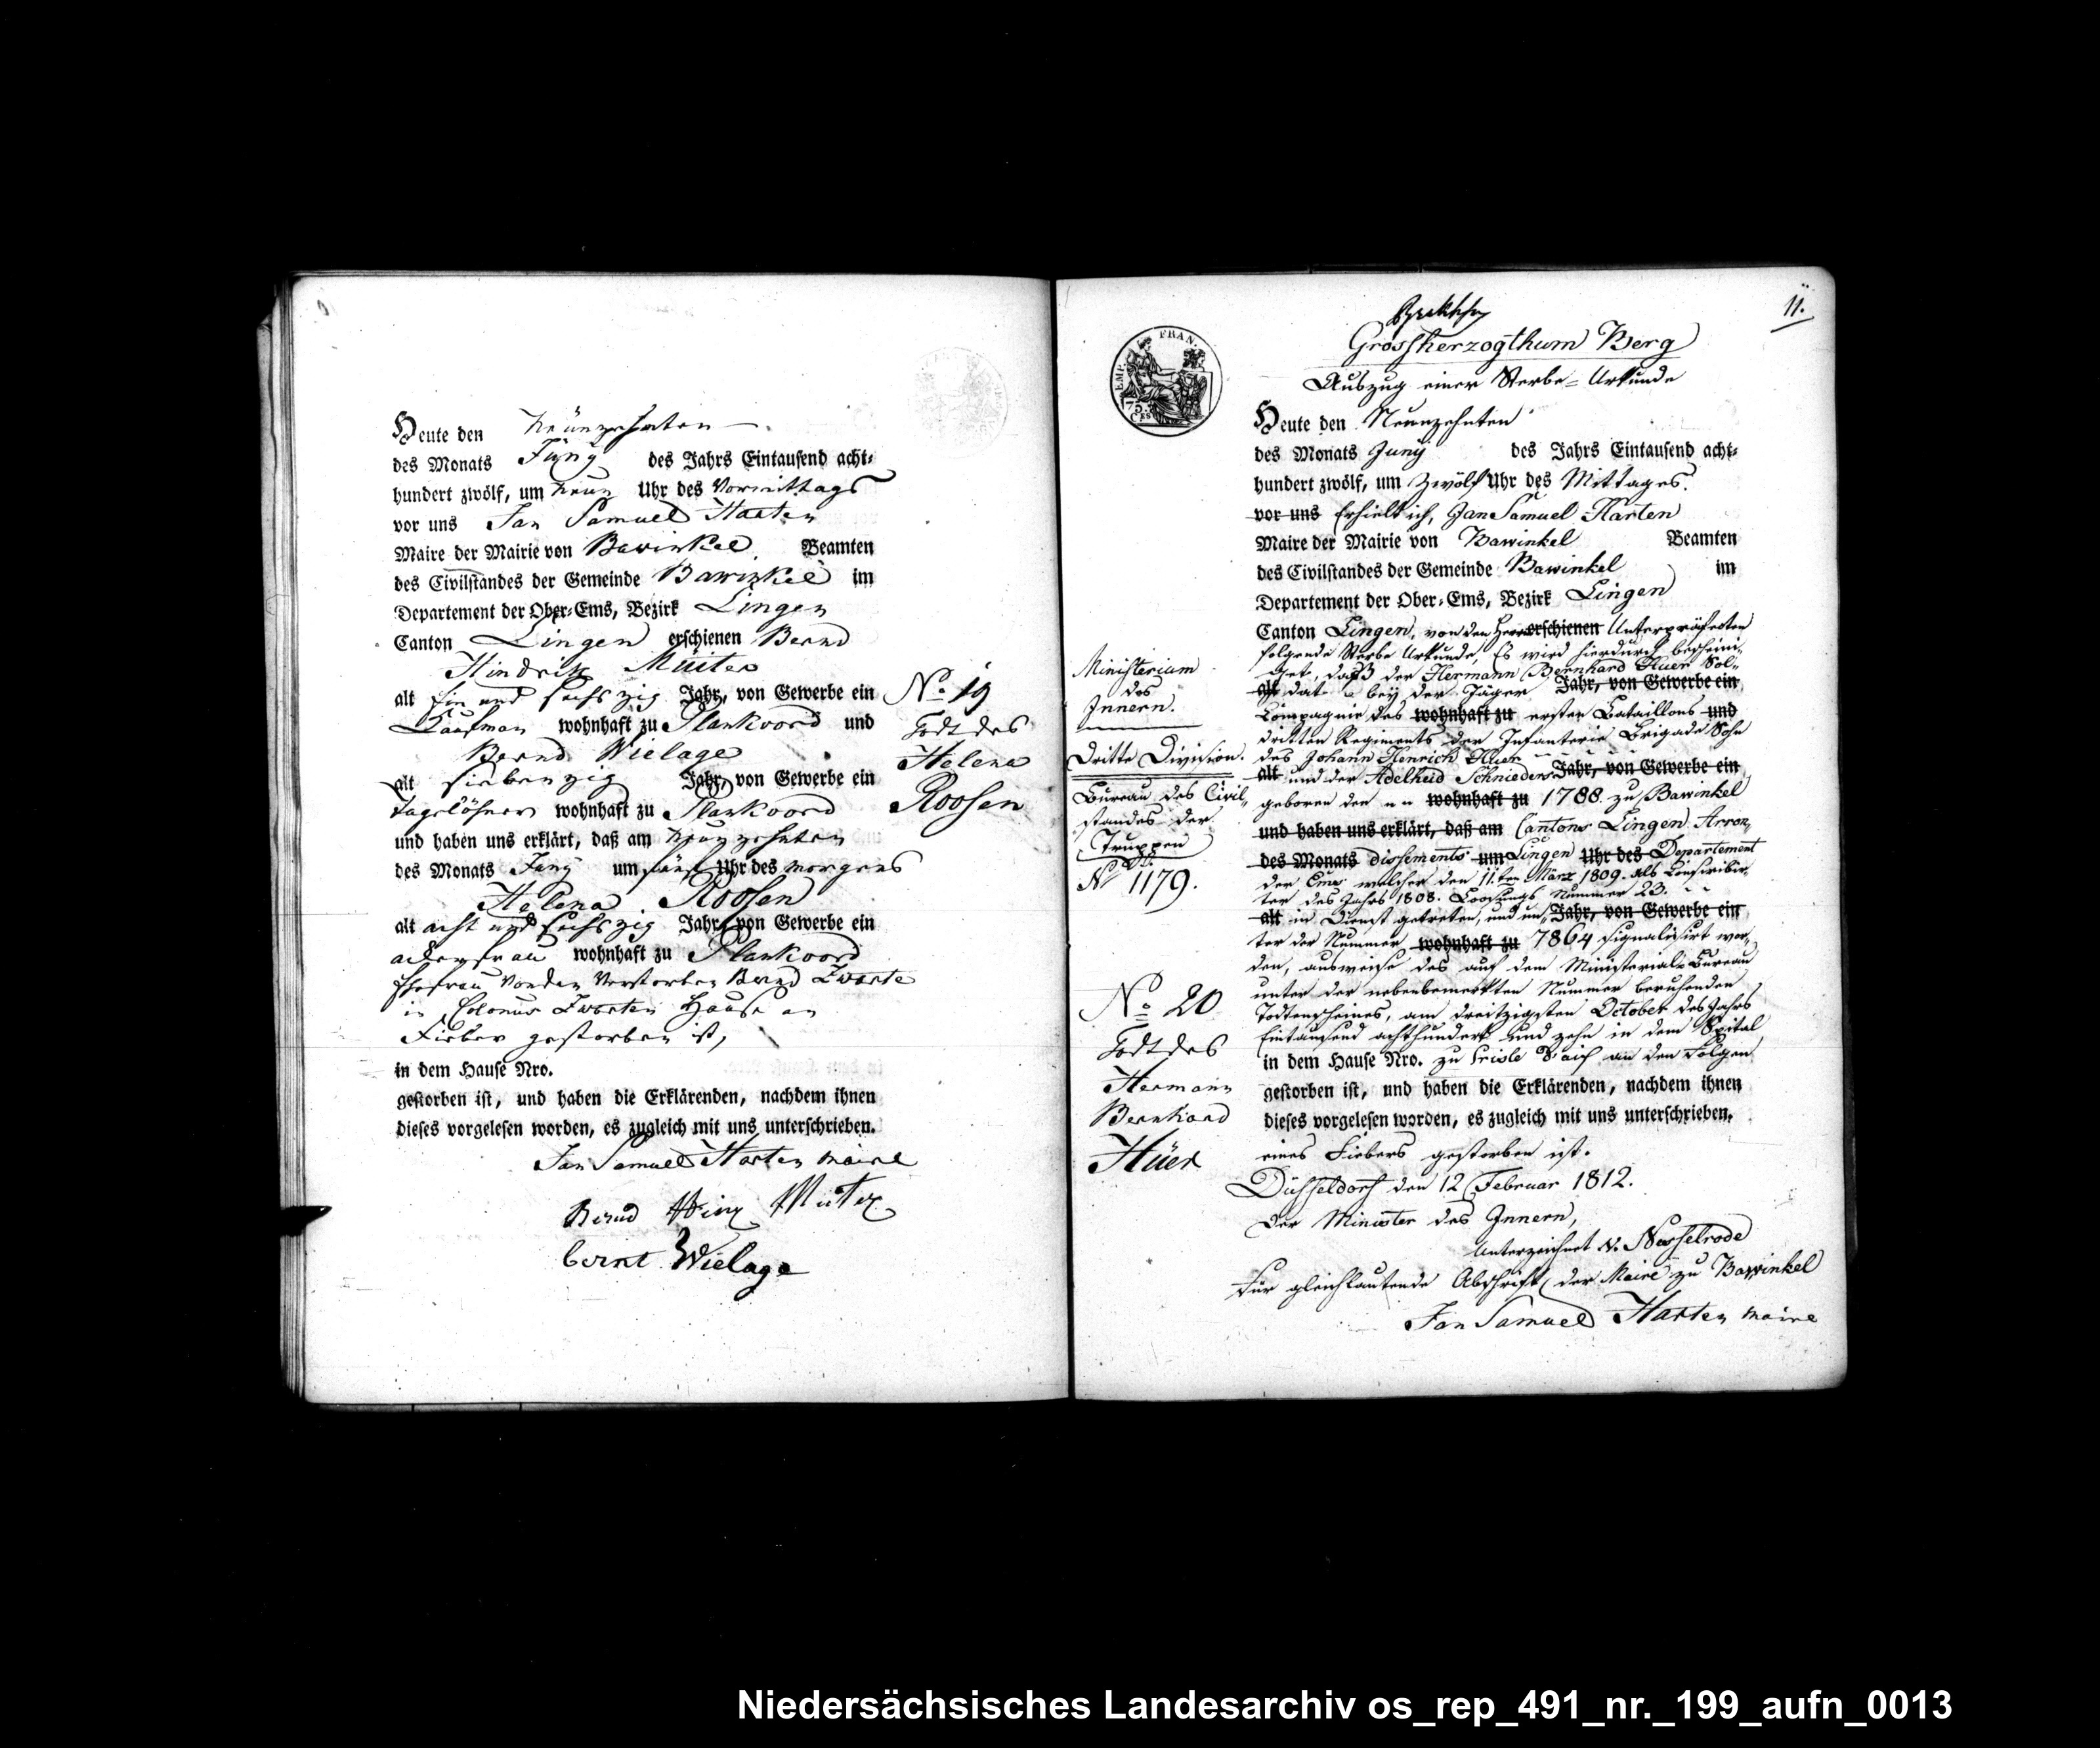 Heute den Neünzehnten
des Monats Juny des Jahrs Eintausend acht-
hundert zwölf, um Neun Uhr des Vormittags
vor uns Jan Samuel Harten
Maire der Mairie von Bawinkel, Beamten
des Civilstandes der Gemeinde Bawinkel im
Departement der Ober-Ems, Bezirk Lingen
Canton Lingen erschienen Bernd
Hindrik Müter
alt Ein und sechszig Jahr, von Gewerbe ein
Kaufman wohnhaft zu Plankoord und
Bernd Wielage
alt siebenzig Jahr, von Gewerbe ein
Tagelöhner wohnhaft zu Plankoord
und haben uns erklärt, daß am Neunzehnten
des Monats Juny um fünf Uhr des morgens
Helena Roosen
alt acht und sechszig Jahr, von Gewerbe ein
ackersfrau wohnhaft zu Plankoord
Ehefrau von den Verstorben Bernd Zwarte
in Colonus Zwarten Hause an
Fieber gestorben ist,
in dem Hause Nro.
gestorben ist, und haben die Erklärenden, nachdem ihnen
dieses vorgelesen worden, es zugleich mit uns unterschrieben.
Jan Samuel Harten maire
Bernd Hinr Müter
bernt Wielage
No 19
Todt des
Helena
Roosen
11.
EMP. FRAN.
75. CES
Grossherzogthum Berg
Auszug einer Sterbe-Urkunde
Heute den Neunzehnten
des Monats Juny des Jahrs Eintausend acht-
hundert zwölf, um Zwölf Uhr des Mittages.
vor uns Erhielt ich, Jan Samuel Harten
Maire der Mairie von Bawinkel Beamten
des Civilstandes der Gemeinde Bawinkel im
Departement der Ober-Ems, Bezirk Lingen
Canton Lingen, von dem Herrn erschienen Unterpräfecten
folgende Sterbe Urkunde, Es wird hierdurch bescheini-
get, daß der Hermann Bernhard Huer Sol-
alt dat bey der Jäger Jahr, von Gewerbe ein
Compagnie des wohnhaft zu ersten Bataillons und
dritten Regiments der Infanterie Brigade Sohn
des Johann Henrich Huer
alt und der Adelheid Schnieders Jahr, von Gewerbe ein
geboren den wohnhaft zu 1788 zu Bawinkel
und haben uns erklärt, daß am Cantons Lingen Arron-
des Monats dissements um Lingen Uhr des Departement
der Ems welcher den 11.ten März 1809. als Conscribir-
ter des Jahrs 1808. Loosungs Nummer 23.
alt in Dienst getreten, und un- Jahr, von Gewerbe ein
ter der Nummer wohnhaft zu 7864 signalisirt wor-
den, ausweise des auf dem Ministerial-Bureau
unter der nebenbemerkten Nummer beruhenden
Todtenscheines, am dreitzigsten October des Jahrs
Eintausend achthundert und zehn in dem Spital
in dem Hause Nro. zu an den Folgen
gestorben ist, und haben die Erklärenden, nachdem ihnen
dieses vorgelesen worden, es zugleich mit uns unterschrieben.
eines Fiebers gestorben ist.
Düsseldorf den 12 Februar 1812.
Der Minister des Innern,
Unterzeichnet Nesselrode
Für gleichlautende Abschrift, der Maire zu Bawinkel
Jan Samuel Harten maire
Ministerium
des
Innern.
Dritte Division.
Bureau des Civil-
standes der
Truppen
No 1179.
No 20
Todt des
Hermann
Bernhard
Hüer
Niedersächsisches Landesarchiv os_rep_491_nr._199_aufn_0013